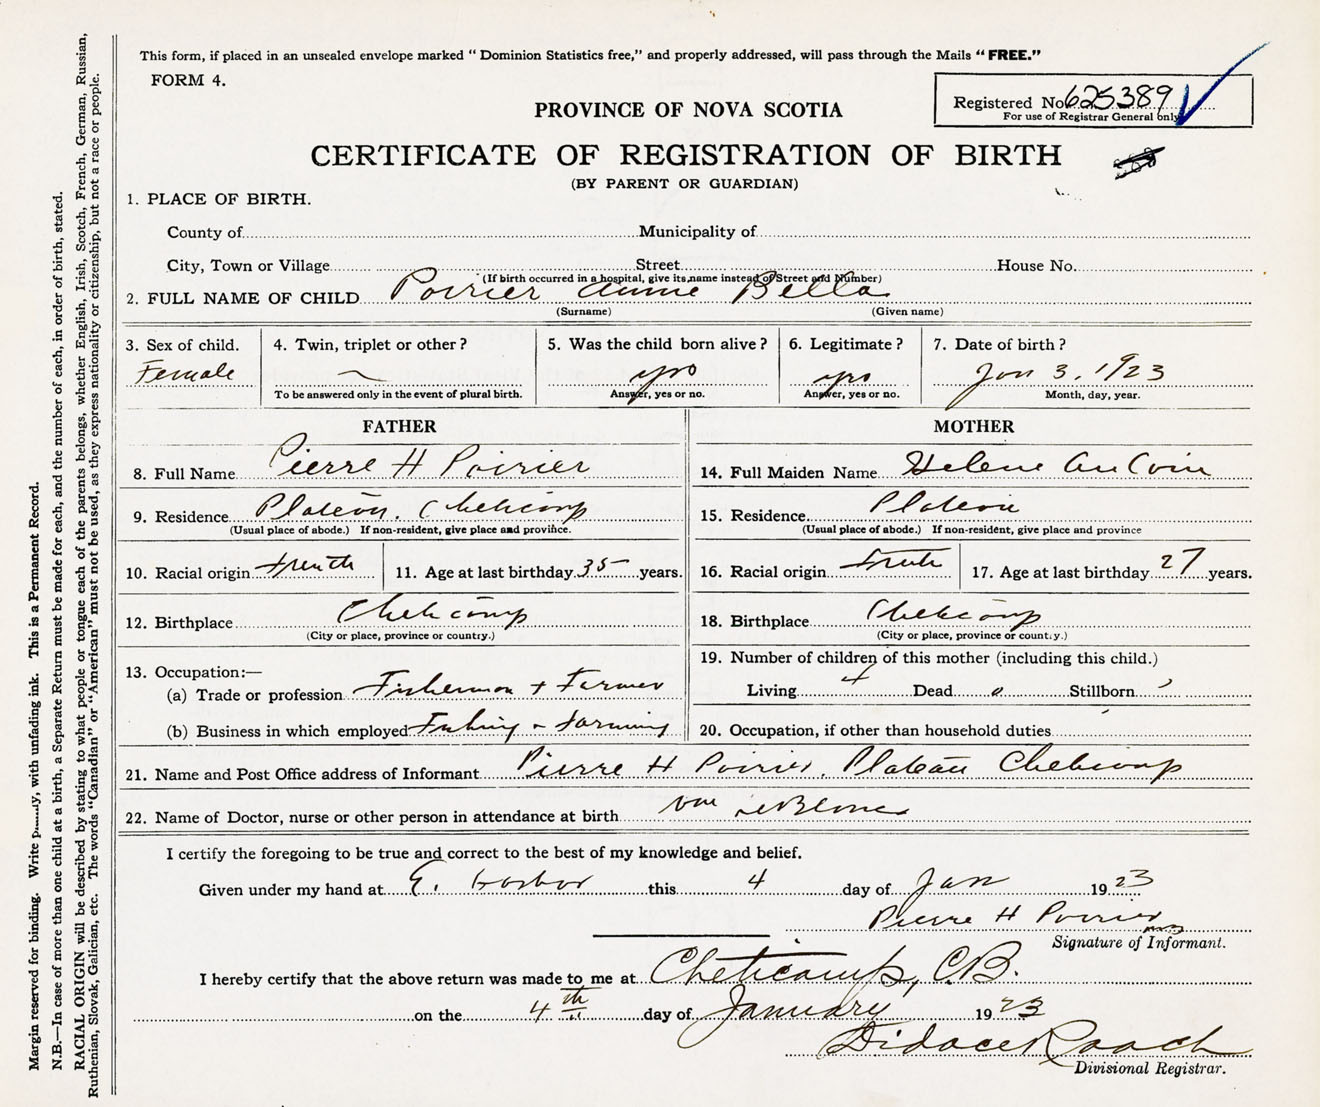 This form, if placed in an unsealed envelope marked " Dominion Statistics free," and properly addressed, will pass through the Mails " FREE."
FORM 4.
Registered No. 625389
For use of Registrar General only
PROVINCE OF NOVA SCOTIA
CERTIFICATE OF REGISTRATION OF BIRTH
(BY PARENT OR GUARDIAN)
1. PLACE OF BIRTH.
County of Municipality of
City, Town or Village Street House No.
(If birth occurred in a hospital, give its name instead of Street and Number)
2. FULL NAME OF CHILD Poirier Annie Bella
(Surname) (Given name)
3. Sex of child. 4. Twin, triplet or other ? 5. Was the child born alive ? 6. Legitimate ? 7. Date of birth ?
Female yes yes Jan 3, 1923
To be answered only in the event of plural birth. Answer, yes or no. Answer, yes or no. Month, day, year.
FATHER MOTHER
8. Full Name Pierre H Poirier 14. Full Maiden Name Helene AuCoin
9. Residence Plateau, Cheticamp 15. Residence Plateau
(Usual place of abode.) If non-resident, give place and province. (Usual place of abode.) If non-resident, give place and province
10. Racial origin French 11. Age at last birthday 35 years. 16. Racial origin French 17. Age at last birthday 27 years.
12. Birthplace Cheticamp 18. Birthplace Cheticamp
(City or place, province or country.) (City or place, province or country.)
13. Occupation:— 19. Number of children of this mother (including this child.)
(a) Trade or profession Fisherman + Farmer Living 4 Dead 0 Stillborn
(b) Business in which employed Fishing + farming 20. Occupation, if other than household duties
21. Name and Post Office address of Informant Pierre H Poirier, Plateau Cheticamp
22. Name of Doctor, nurse or other person in attendance at birth LeBlanc
I certify the foregoing to be true and correct to the best of my knowledge and belief.
Given under my hand at E. Harbor this 4 day of Jan 1923
Pierre H Poirier
Signature of Informant.
I hereby certify that the above return was made to me at Cheticamp, C.B.
on the 4th day of January 1923
Didace Roach
Divisional Registrar.
Margin reserved for binding. Write with unfading ink. This is a Permanent Record.
N.B.—In case of more than one child at a birth, a Separate Return must be made for each, and the number of each, in order of birth, stated.
RACIAL ORIGIN will be described by stating to what people or tongue each of the parents belongs, whether English, Irish, Scotch, French, German, Russian,
Ruthenian, Slovak, Galician, etc. The words "Canadian" or "American" must not be used, as they express nationality or citizenship, but not a race or people.